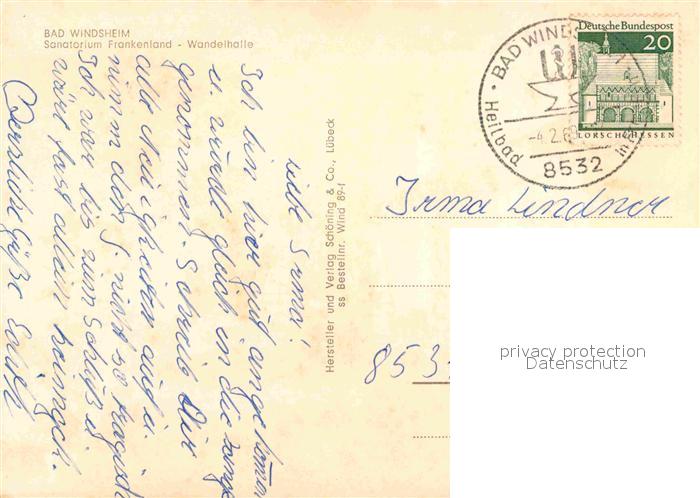 BAD WINDSHEIM
Sanatorium Frankenland - Wandelhalle
Liebe Irma!
Ich bin hier gut angekommen
u. wurde gleich in die Zange
genommen. Schreib Dir
alle Neuigkeiten auf u.
nimm den J. nicht so tragisch
Ich war bis zum Schluß u.
wäre fast allein
Herzliche Grüße Edith
Hersteller und Verlag Schöning & Co., Lübeck
ss Bestellnr. Wind 89-f
Deutsche Bundespost
20
LORSCH/HESSEN
BAD WINDSHEIM
-4.2.69
8532
Heilbad in
Irma Lindner
853
privacy protection
Datenschutz